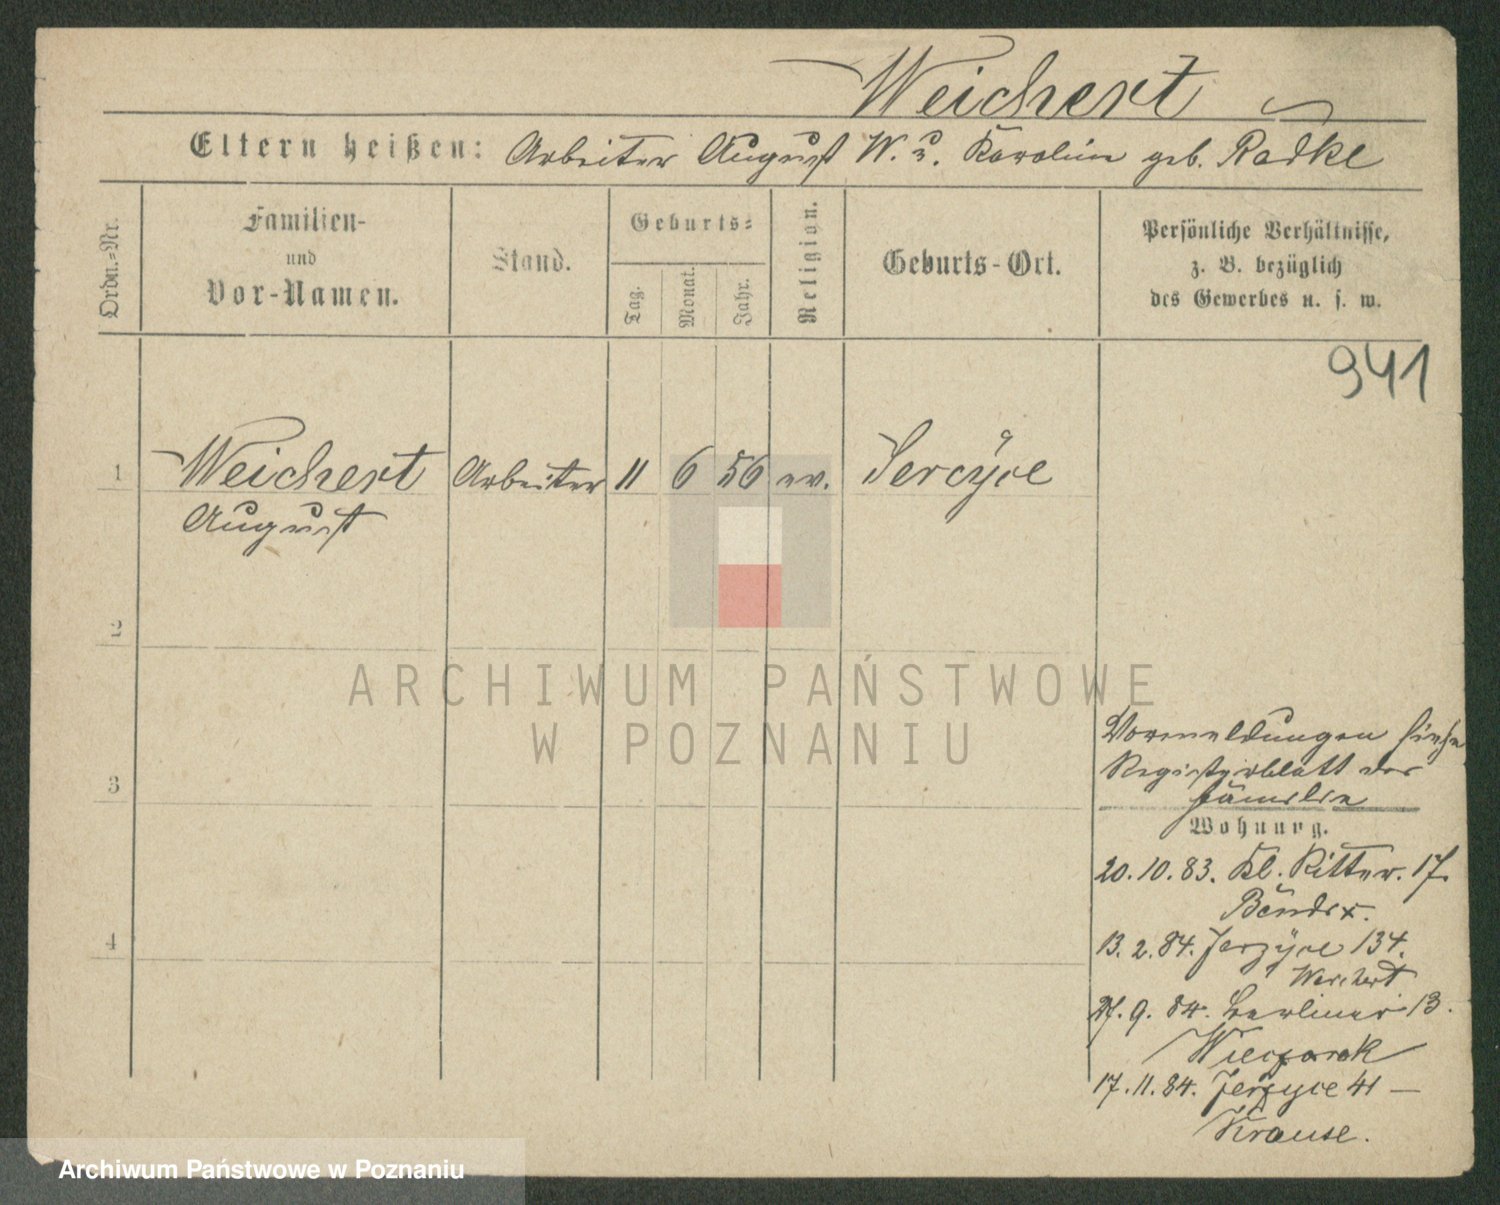 Weichert
Eltern heißen: Arbeiter August W. u. Karoline geb. Radke
Ordn.=Nr.
Familien-
und
Vor-Namen.
Stand.
Geburts=
Tag.
Monat.
Jahr.
Religion.
Geburts-Ort.
Persönliche Verhältnisse,
z. B. bezüglich
des Gewerbes u. s. w.
941
1 Weichert Arbeiter 11 6 56 ev.
August
2
ARCHIWUM PAŃSTWOWE
W POZNANIU
Vormeldungen siehe
3 Registerblatt der
Familie
Wohnung.
20.10.83. Kl. Ritter. 17.
13.2.84. Jerzyce 134.
4
Weichert
27.9.84. Berliner 13.
Wieczorek
17.11.84. Jerzyce 41 —
Krause.
Archiwum Państwowe w Poznaniu